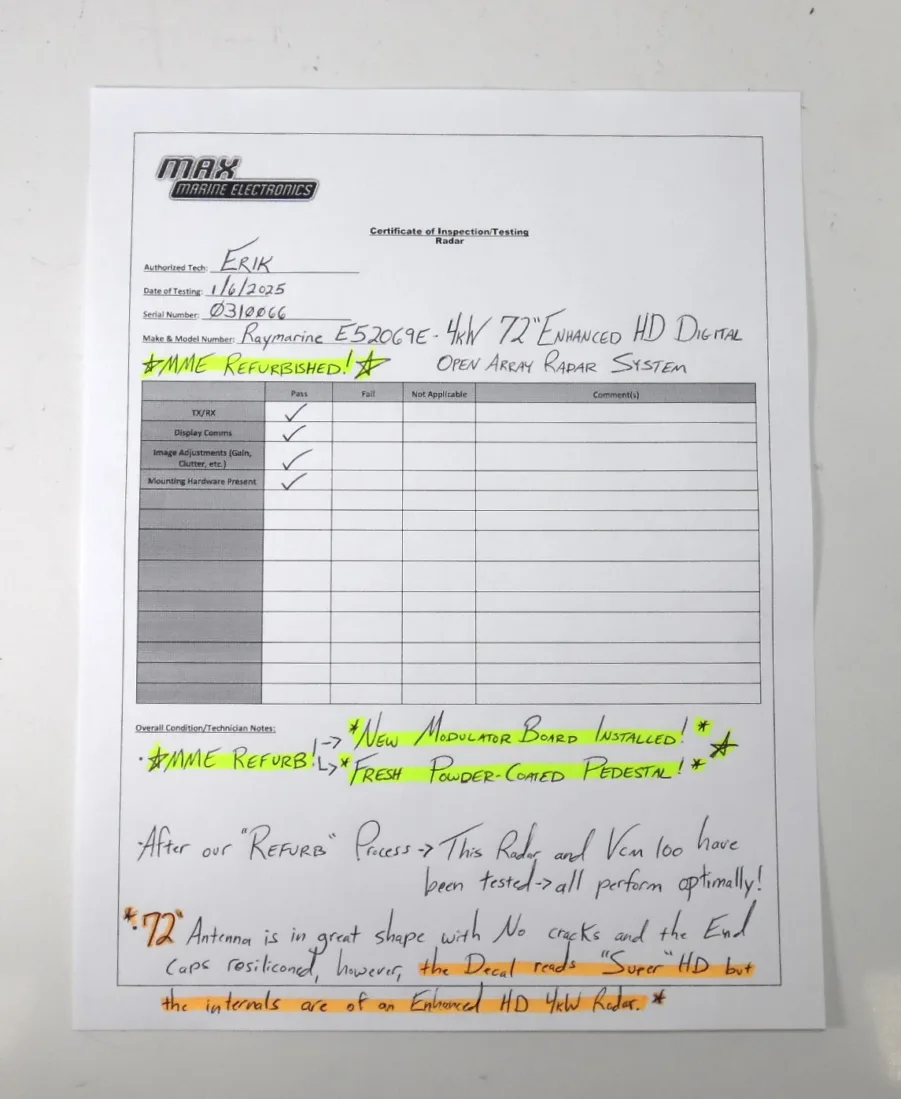 MAX
MARINE ELECTRONICS
Certificate of Inspection/Testing
Radar
Authorized Tech: ERIK
Date of Testing: 1/6/2025
Serial Number: 0310066
Make & Model Number: Raymarine E52069E - 4kW 72" ENHANCED HD DIGITAL
☆MME REFURBISHED!☆ OPEN ARRAY RADAR SYSTEM
Pass Fail Not Applicable Comment(s)
TX/RX ✓
Display Comms ✓
Image Adjustments (Gain,
Clutter, etc.) ✓
Mounting Hardware Present ✓
Overall Condition/Technician Notes:
-> *NEW MODULATOR BOARD INSTALLED!*
· ☆MME REFURB! L>* FRESH POWDER-COATED PEDESTAL!* ☆
·After our "REFURB" Process -> This Radar and Vcm 100 have
been tested -> all perform optimally!
*·72" Antenna is in great shape with No cracks and the End
Caps rosiliconed, however, the Decal reads "Super" HD but
the internals are of an Enhanced HD 4kW Radar.*